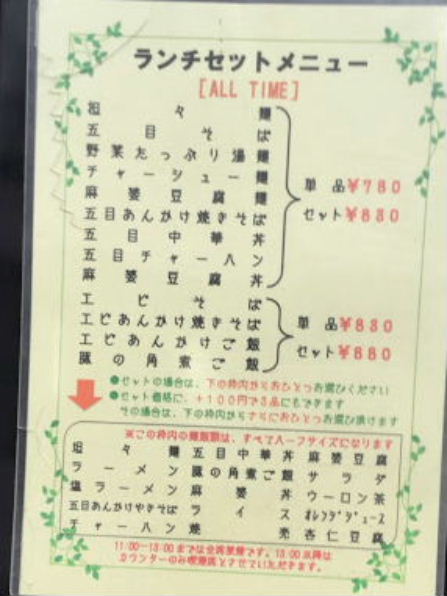 ランチセットメニュー
[ALL TIME]
担々麺
五目そば
野菜たっぷり湯麺
チャーシュー麺
麻婆豆腐麺
五目あんかけ焼きそば
五目中華丼
五目チャーハン
麻婆豆腐丼
単品¥780
セット¥830
エビそば
エビあんかけ焼きそば
エビあんかけご飯
豚の角煮ご飯
単品¥830
セット¥880
●セットの場合は、下の枠内からおひとつお選びください
●セット価格に、+100円で3品にもできます
その場合は、下の枠内からさらにおひとつお選び頂けます
※この枠内の麺飯類は、すべてハーフサイズになります
担々麺 五目中華丼 麻婆豆腐
ラーメン 豚の角煮ご飯 サラダ
塩ラーメン 麻婆丼 ウーロン茶
五目あんかけやきそば ライス オレンジジュース
チャーハン 焼売 杏仁豆腐
11:00-13:00までは全席禁煙です。13:00以降は
カウンターのみ喫煙席とさせていただきます。